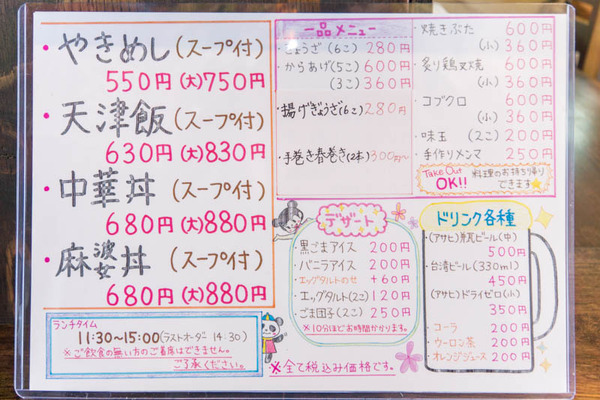 ・やきめし(スープ付)
550円(大)750円
・天津飯(スープ付)
630円(大)830円
・中華丼(スープ付)
680円(大)880円
・麻婆丼(スープ付)
680円(大)880円
ランチタイム
11:30~15:00(ラストオーダー 14:30)
※ご飲食の無い方のご着席はできません。
ご了承ください。
一品メニュー
・ぎょうざ(6こ) 280円
・からあげ(5こ) 600円
(3こ) 360円
・揚げぎょうざ(6こ) 280円
・手巻き春巻き(2本) 300円
・焼きぶた 600円
(小) 360円
・炙り鶏叉焼 600円
(小) 360円
・コブクロ 600円
(小) 360円
・味玉 (2こ) 200円
・手作りメンマ 250円
Take Out OK!! 料理のお持ち帰り
できます
デザート
・黒ごまアイス 200円
・バニラアイス 200円
・エッグタルトのせ +60円
・エッグタルト(2こ) 120円
・ごま団子(2こ) 250円
※10分ほどお時間かかります。
※全て税込み価格です。
ドリンク各種
・(アサヒ)瓶ビール(中)
500円
・台湾ビール(330ml)
450円
・(アサヒ)ドライゼロ(小)
350円
・コーラ 200円
・ウーロン茶 200円
・オレンジジュース 200円